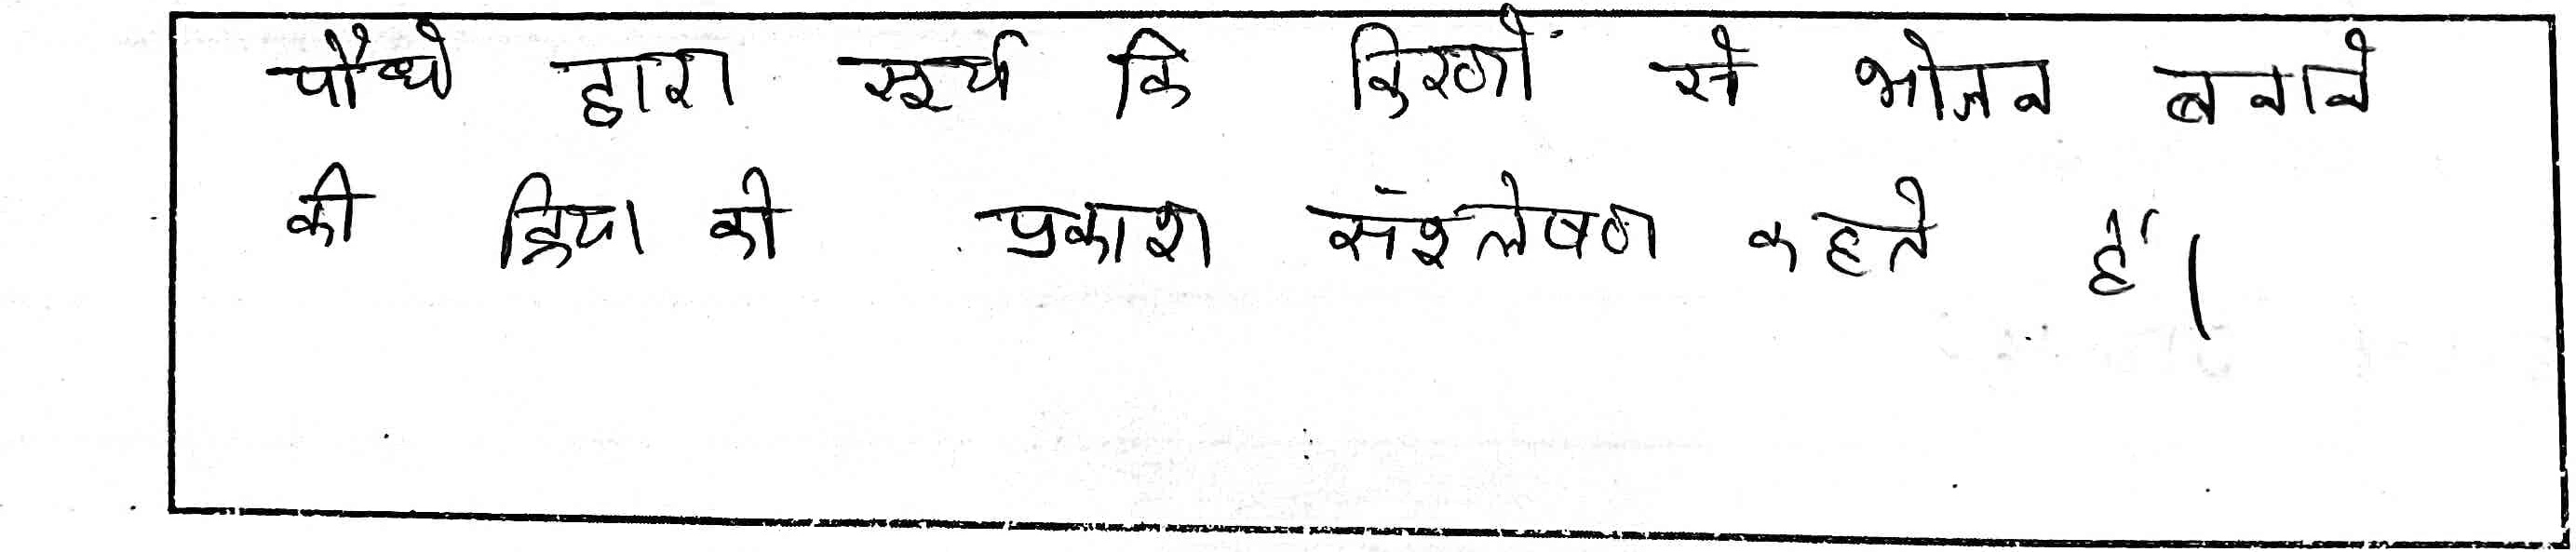 पौधो द्वारा सूर्य कि किरणों से भोजन बनाने
की क्रिया को प्रकाश संश्लेषण कहते हैं।